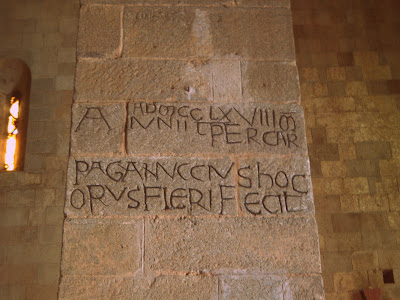 A AD MCCLXVIII M
IVNII TPERCAR
PAGANVCCIVSHOC
OPVSFIERIFECIT